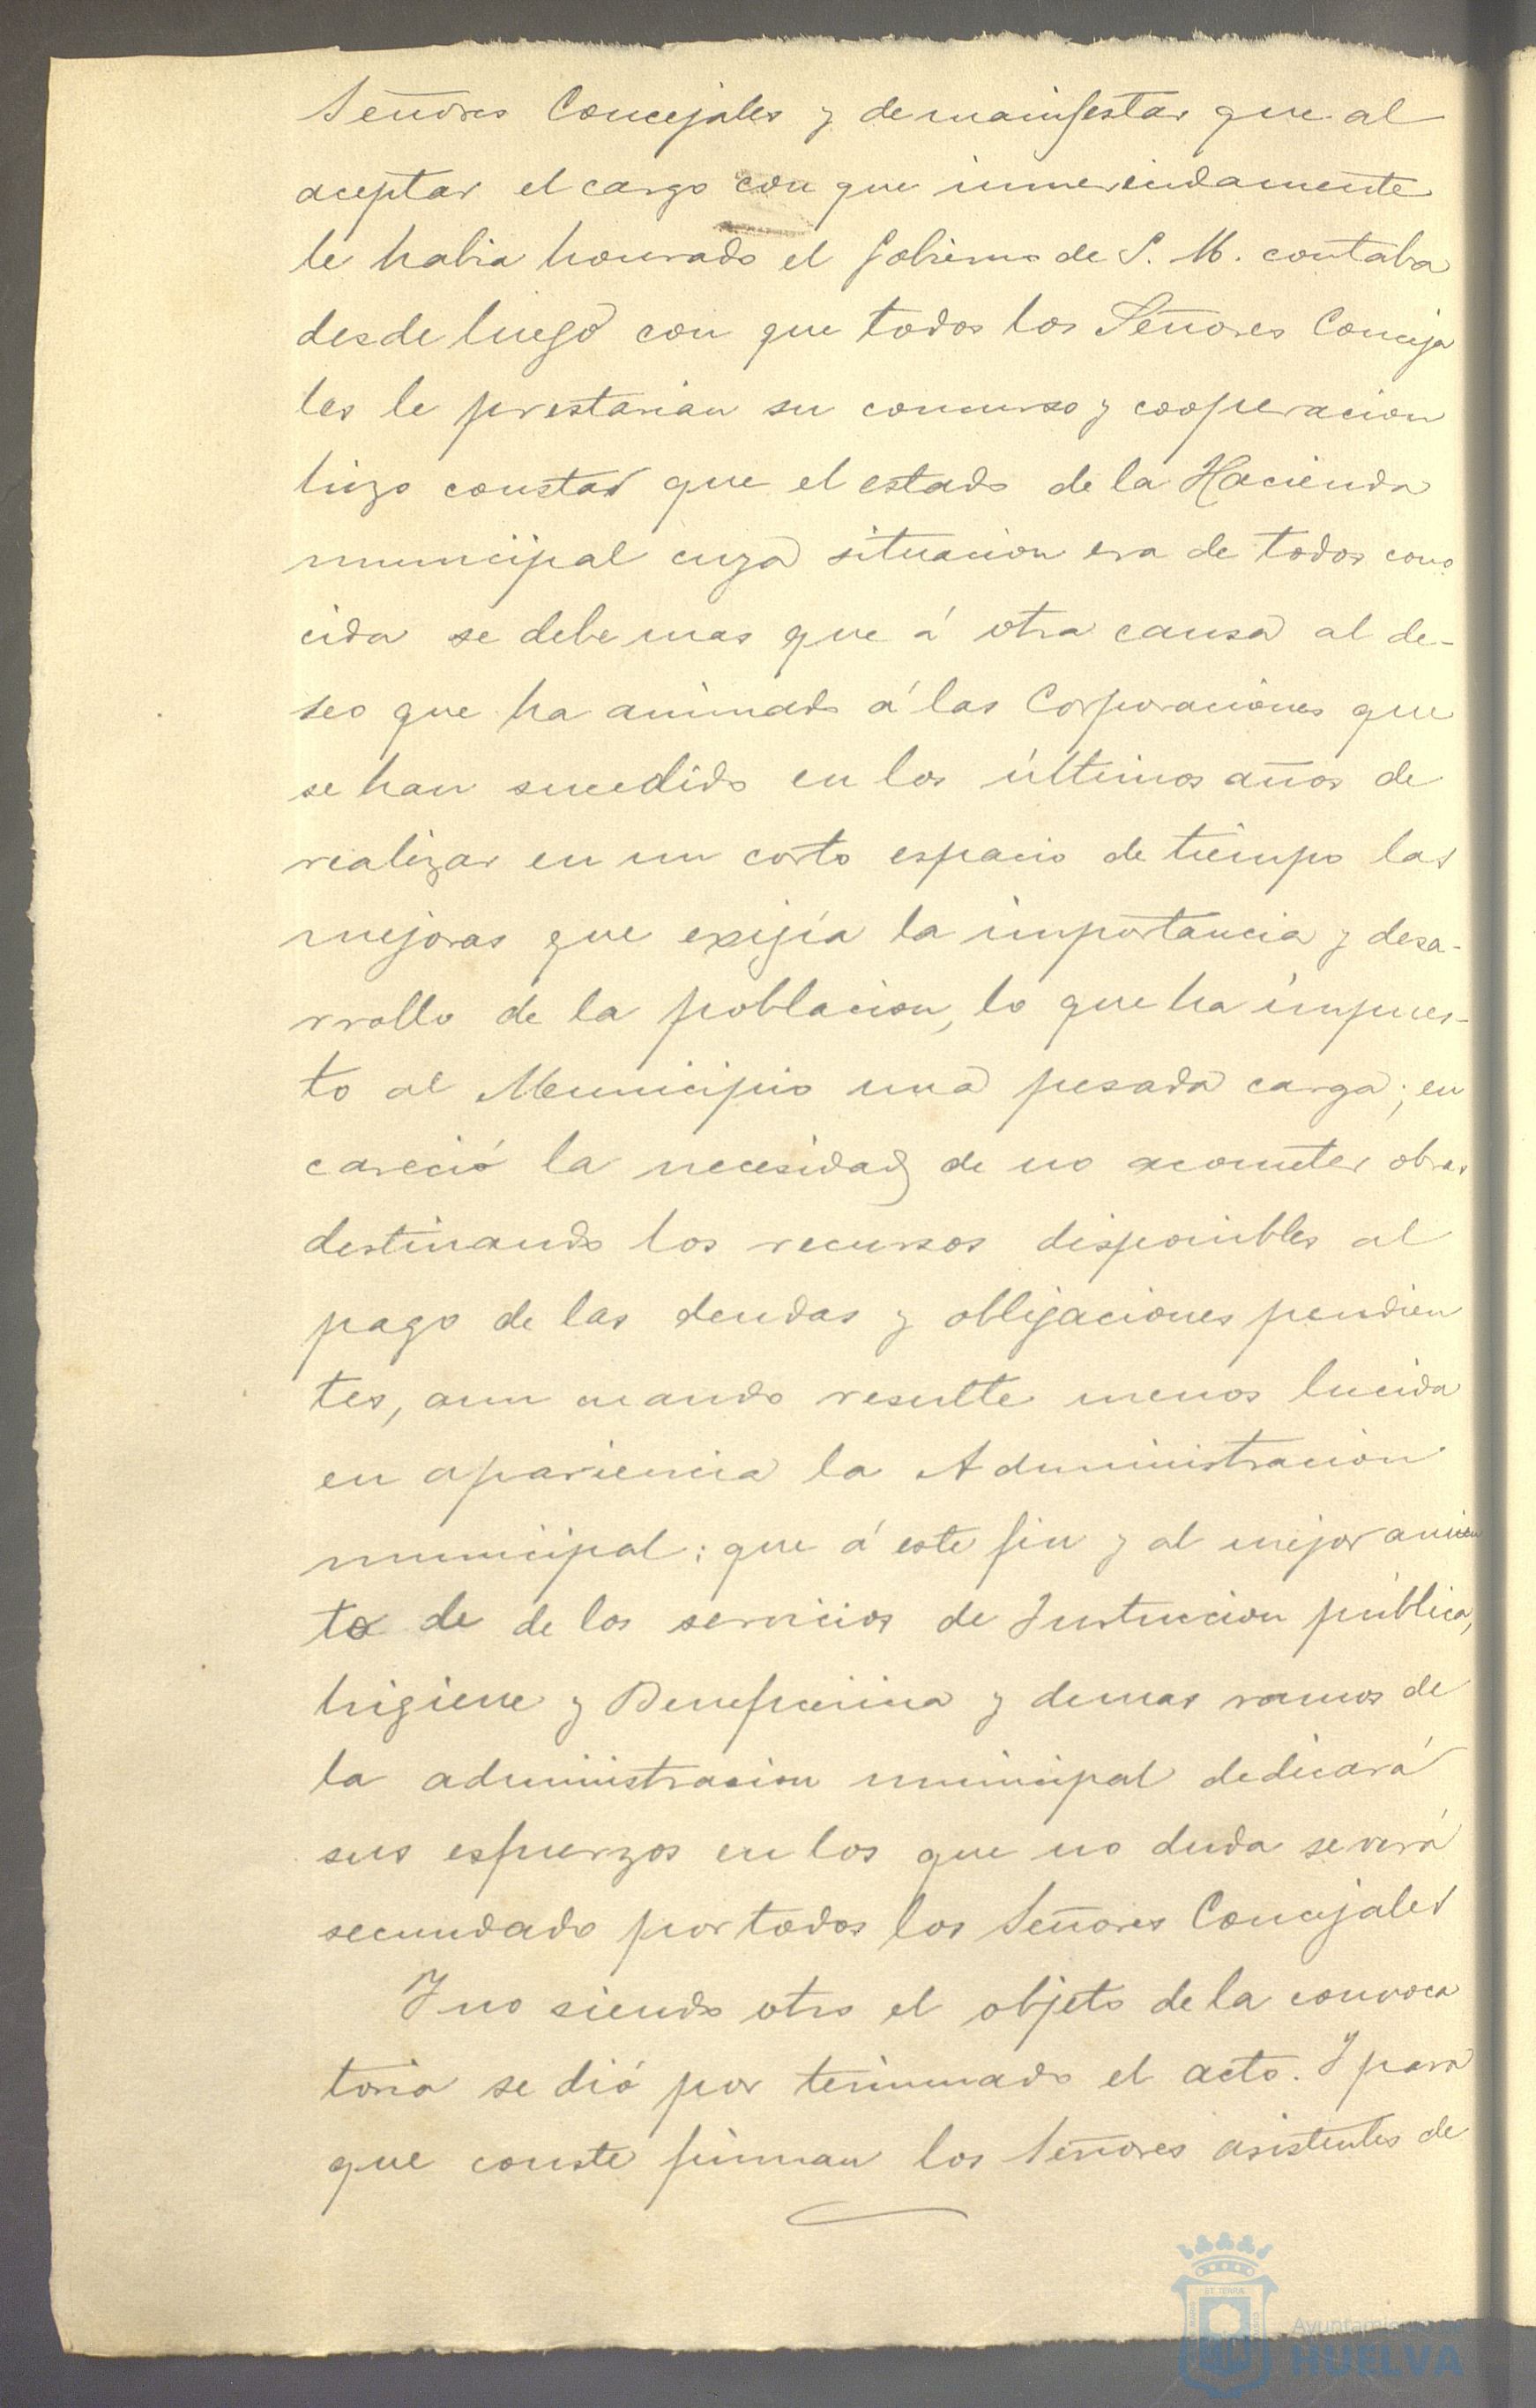 Señores Concejales y de manifestar que al
aceptar el cargo con que inmerecidamente
le habia honrado el Gobierno de S. M. contaba
desde luego con que todos los Señores Conceja
les le prestarian su concurso y cooperacion
hizo constar que el estado de la Hacienda
municipal cuya situacion era de todos cono
cida se debe mas que á otra causa al de-
seo que ha animado á las Corporaciones que
se han sucedido en los últimos años de
realizar en un corto espacio de tiempo las
mejoras que exijía la importancia y desa-
rrollo de la poblacion, lo que ha impues-
to al Municipio una pesada carga; en
careció la necesidad de no acometer obras
destinando los recursos disponibles al
pago de las deudas y obligaciones pendien
tes, aun cuando resulte menos lucida
en apariencia la Administracion
municipal: que á este fin y al mejoramien
to de de los servicios de Instruccion pública,
higiene y Beneficencia y demas ramos de
la administracion municipal dedicará
sus esfuerzos en los que no duda se verá
secundado por todos los Señores Concejales
Y no siendo otro el objeto de la convoca
toria se dió por terminado el acto. Y para
que conste firman los Señores asistentes de
Ayuntamiento de
HUELVA